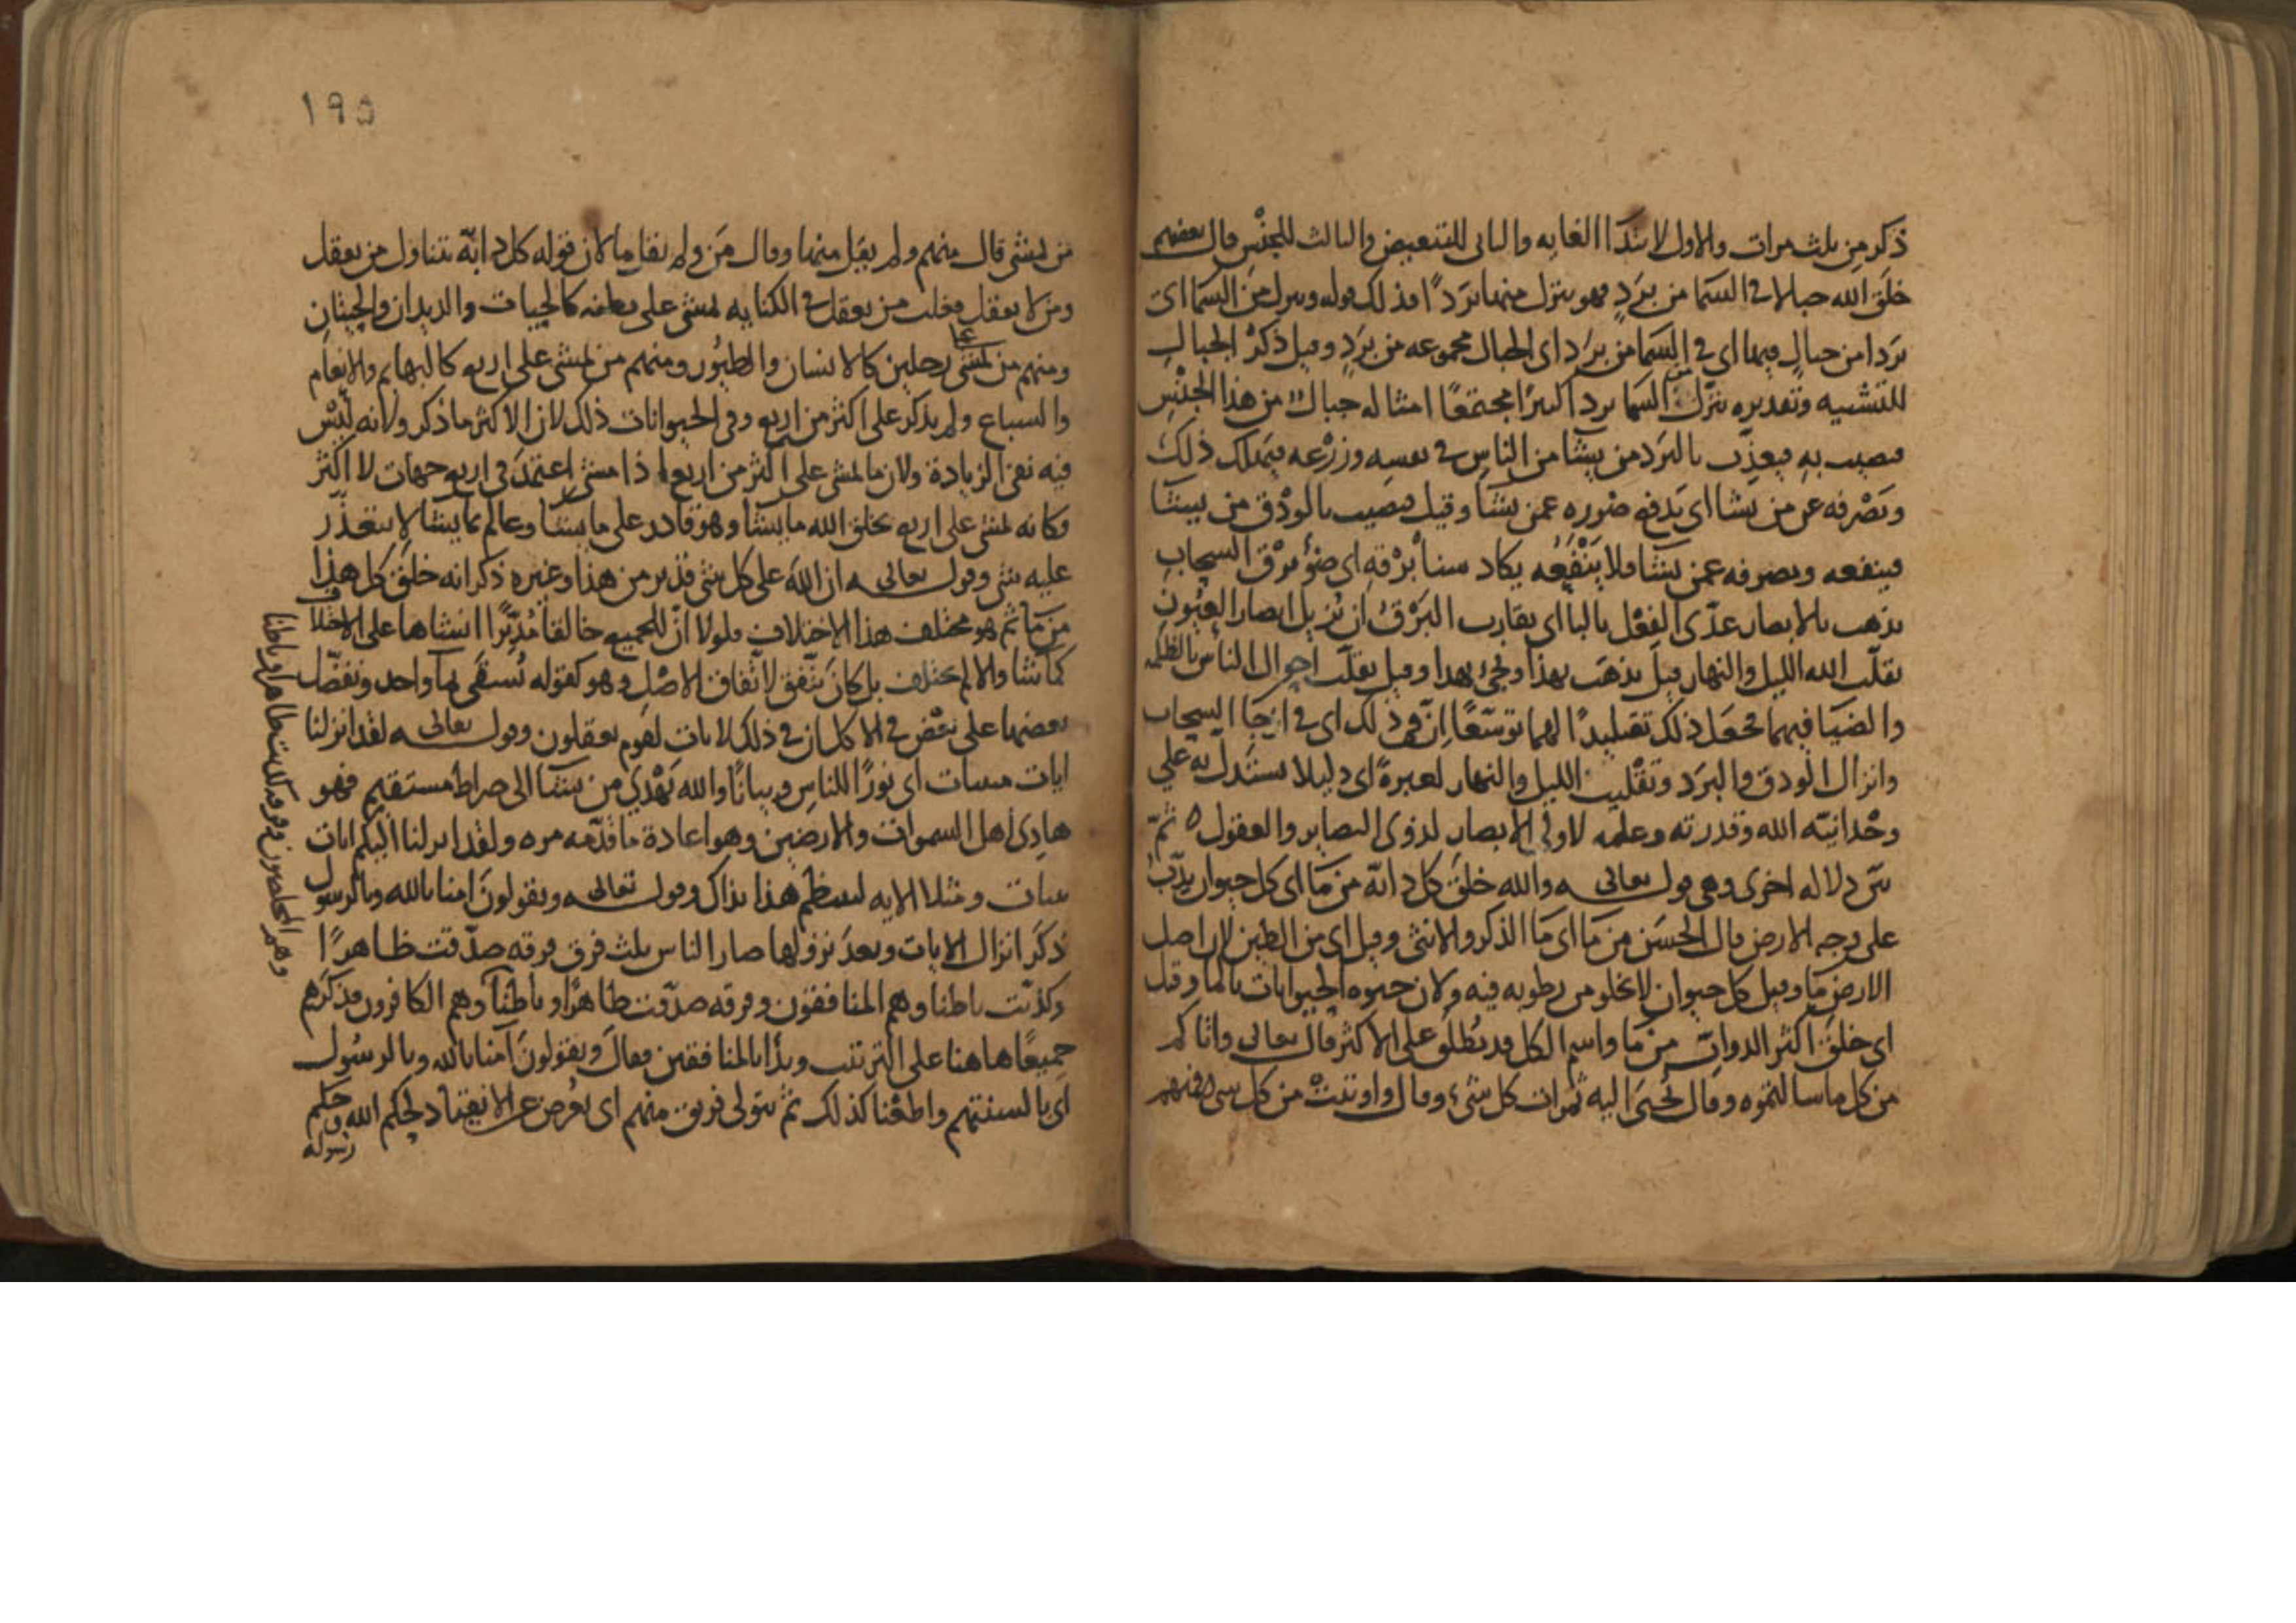 ذكر من ثلث مرات والاول لابتدا الغايه والثانى للتبعيض والثالث للجنس قال بعضهم
خلق الله جبالا فى السما من برد فهو ينزل منها بردًا فذلك قوله وينزل من السما اى
بردا من جبال فيها اى فى السما من برد اى الجبال مجموعه من برد وقيل ذكر الجبال
للتشبيه وتقديره ينزل من السما بردا كثيرًا مجتمعًا امثاله جبال من هذا الجنس
فيصيب به فيعذب بالبرد من يشا من الناس فى نفسه وزرعه فيهلك ذلك
ويصرفه عن من يشا اى يدفع ضرره عمن يشا وقيل فيصيب بالودق من يشا
فينفعه ويصرفه عمن يشا فلا ينفعه يكاد سنا برقه اى ضوء برق السحاب
يذهب بالابصار عدّى الفعل بالبا اى يقارب البرق ان يزيل ابصار العيون
يقلّب الله الليل والنهار قيل يذهب بهذا ويجىء بهذا وقيل يقلّب احوال الناس بالظلمه
والضيا فيهما فجعل ذلك تقليبًا لهما توسّعًا إنّ فى ذلك اى فى ازجا السحاب
وانزال الودق والبرد وتقليب الليل والنهار لعبرةً اى دليلا يستدل به على
وحدانيته الله وقدرته وعلمه لاولى الابصار لذوى البصاير والعقول ه ثمّ
بيّن دلاله اخرى وهى قوله تعالى والله خلق كل دابّة من ما اى كل حيوان يدبّ
على وجه الارض قال الحسن من ما اى ما الذكر والانثى وقيل اى من الطين لان اصل
الارض ما وقيل كل حيوان لا يخلو من رطوبه فيه ولان حيوه الحيوانات بالما وقيل
اى خلق اكثر الدوابّ من ما واسم الكل قد يطلق على الاكثر قال تعالى واتاكم
من كل ما سالتموه وقال يُجبَى اليه ثمرات كل شىء وقال واوتيت من كل شى فمنهم
١٩٥
من يمشى قال منهم ولم يقل منها وقال مَن ولم يقل ما لان قوله كل دابّة يتناول من يعقل
ومن لا يعقل فغلب من يعقل فى الكنايه يمشى على بطنه كالحيات والديدان والحيتان
ومنهم من يمشى على رجلين كالانسان والطيور ومنهم من يمشى على اربع كالبهايم والانعام
والسباع ولم يذكر على اكثر من اربع وفى الحيوانات ذلك لان الاكثر ما ذكر ولانه ليْس
فيه نفى الزيادة ولان ما يمشى على اكثر من اربع اذا مشى اعتمدَ فى اربع جهات لا اكثر
فكانه يمشى على اربع يخلق الله ما يشا وهو قادر على ما يشا وعالم بما يشا لا يتعذّر
عليه شى وقوله تعالى ان الله على كل شى قدير من هذا وغيره ذكر انه خلق كل هذا
من ما ثم هو مختلف هذا الاختلاف فلولا ان للجميع خالقا مُدبّرًا انشاها على الاختلاف
كما شا والا لم يختلف بل كان يتّفق لاتّفاق الاصْل وهو كقوله تُسقى بما واحد ونفضّل
بعضها على بعْض فى الاكل ان فى ذلك لايات لقوم يعقلون وقوله تعالى لقد انزلنا
ايات مبينات اى نورًا للناس وبيانًا والله يهدى من يشا الى صراط مستقيم فهو
هادى اهل السموات والارضين وهو اعادة ما قدّمه مره ولقد انزلنا اليكم ايات
مبينات ومثلا الايه لينتظم هذا بذاك وقوله تعالى ويقولونَ امنا بالله وبالرسول
ذكر انزال الايات وبعد نزولها صار الناس ثلث فرق فرقه صدّقت ظاهرًا
وكذّبت باطنا وهم المنافقون وفرقه صدّقت ظاهرًا وباطنًا وهم الكافرون فذكرهم
جميعًا هاهنا على الترتيب وبدا بالمنافقين فقال ويقولون آمنا بالله وبالرسول
اى بالسنتهم واطعْنا كذلك ثم يتولى فريق منهم اى يُعرض عن الانقياد لحكم الله وحكم
رسوله
وهم المخلصون وفرقه كذبت ظاهرا وباطنا